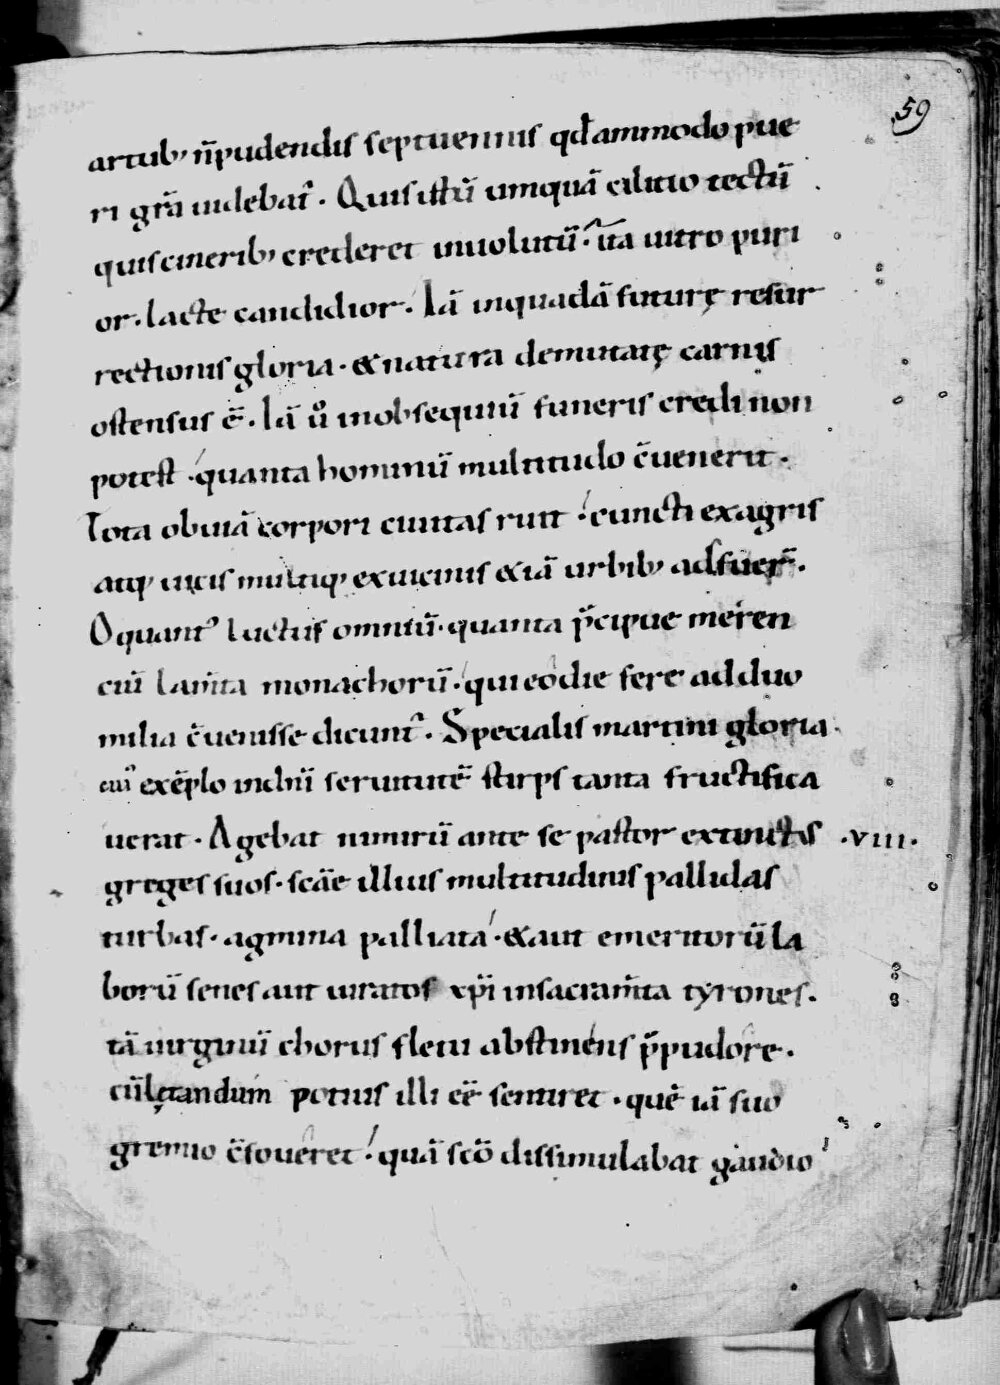 59
artub; n̄pudendis septuennis qd̄ammodo pue
ri gr̄a uidebat᷑. Quis istū umquā cilicio tectū
quis cinerib; crederet inuolutū. ita uitro puri
or. lacte candidior. Iā inquadā futurę resur
rectionis gloria. & natura demutatę carnis
ostensus ē. Iā ů inobsequiū funeris credi non
potest. quanta hominū multitudo c̄uenerit.
Tota obuiā corpori ciuitas ruit. cuncti exagris
atq; uicis multiq; exuicinis &iā urbib; adfuer̄.
O quant᷒ luctus omniū. quanta p̄cipue meren
ciū lam̄ta monachorū. qui eodie fere adduo
milia c̄uenisse dicunt᷑. Specialis martini gloria
eiu᷒ exēplo indn̄i seruitutē stirps tanta fructifica
uerat. Agebat nimirū ante se pastor extinctis
.VIII.
greges suos. scāe illius multitudinis pallidas
turbas. agmina palliata. & aut emeritorū la
borū senes aut iuratos xp̄i insacram̄ta tyrones.
tā uirginū chorus fletu abstinens p̄pudore.
cū lętandum potius illi eē sentiret. quē iā suo
gremio c̄foueret. quā sc̄o dissimulabat gaudio